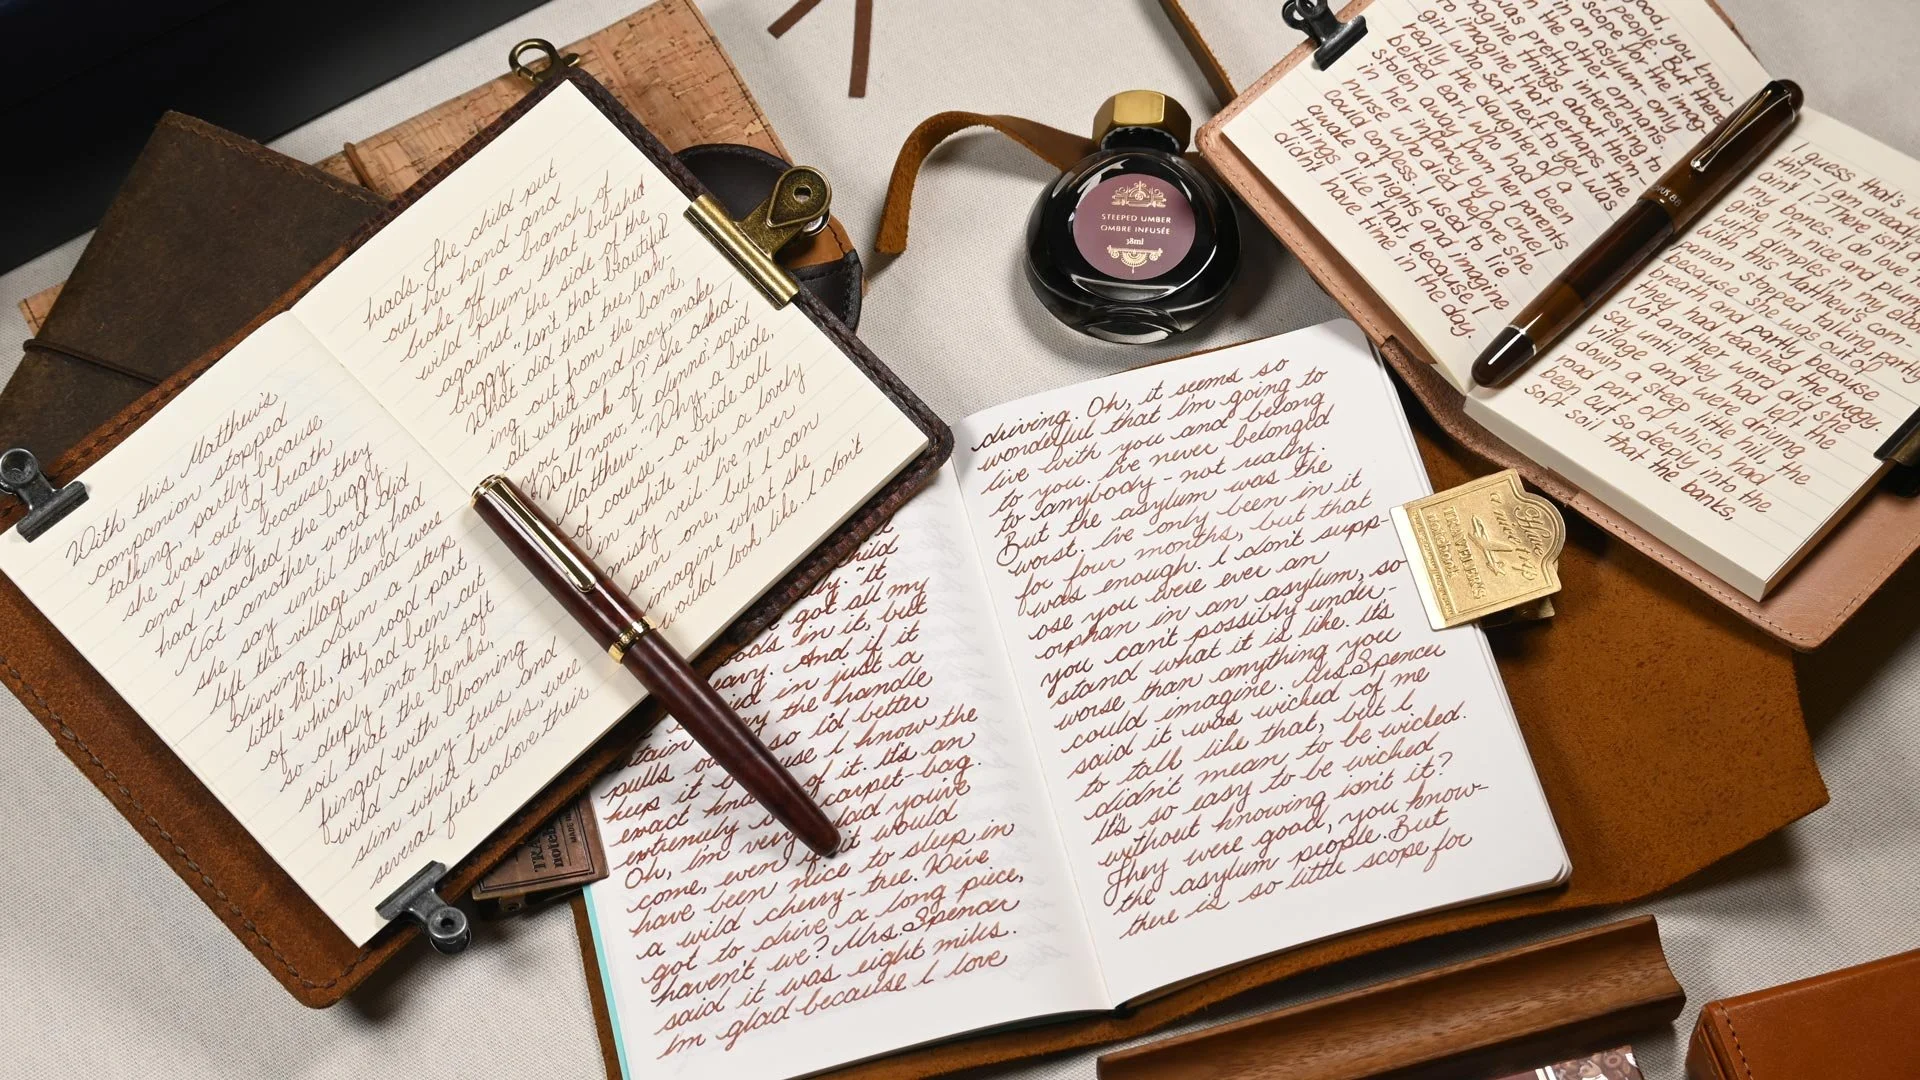 With this Matthew's
companion stopped
talking, partly because
she was out of breath
and partly because they
had reached the buggy.
Not another word did
she say until they had
left the village and were
driving down a steep
little hill, the road part
of which had been cut
so deeply into the soft
soil that the banks,
fringed with blooming
wild cherry-trees and
slim white birches, were
several feet above their
heads. The child put
out her hand and
broke off a branch of
wild plum that brushed
against the side of the
buggy. "Isn't that beautiful?
What did that tree, lean-
ing out from the bank,
all white and lacy, make
you think of?" she asked.
"Well now, I dunno," said
Matthew. "Why, a bride,
of course - a bride all
in white with a lovely
misty veil. I've never
seen one, but I can
imagine what she
would look like. I don't
STEEPED UMBER
OMBRE INFUSÉE
38ml
child
"It
got all my
goods in it, but
heavy. And if it
in just a
the handle
pulls out so I'd better
keep it because I know the
exact of it. It's an
extremely carpet-bag.
Oh, I'm very glad you've
come, even if it would
have been nice to sleep in
a wild cherry-tree. We've
got to drive a long piece,
haven't we? Mrs. Spencer
said it was eight miles.
I'm glad because I love
driving. Oh, it seems so
wonderful that I'm going to
live with you and belong
to you. I've never belonged
to anybody - not really.
But the asylum was the
worst. I've only been in it
for four months, but that
was enough. I don't supp-
ose you were ever an
orphan in an asylum, so
you can't possibly under-
stand what it is like. It's
worse than anything you
could imagine. Mrs. Spencer
said it was wicked of me
to talk like that, but I
didn't mean to be wicked.
It's so easy to be wicked
without knowing isn't it?
They were good, you know-
the asylum people. But
there is so little scope for
good, you know-
people. But there
scope for the imag-
in an asylum- only
in the other orphans.
was pretty interesting to
imagine things about them
to imagine that perhaps the
girl who sat next to you was
really the daughter of a
belted earl, who had been
stolen away from her parents
in her infancy by a cruel
nurse who died before she
could confess. I used to lie
awake at nights and imagine
things like that, because I
didn't have time in the day.
I guess that's
thin- I am dreadful
ain't I? There isn't a
my bones. I do love
gine I'm nice and plump
with dimples in my elbow
With this Matthew's com-
panion stopped talking, partly
because she was out of
breath and partly because
they had reached the buggy.
Not another word did she
say until they had left the
village and were driving
down a steep little hill, the
road part of which had
been cut so deeply into the
soft soil that the banks,
TRAVELER'S
notebook